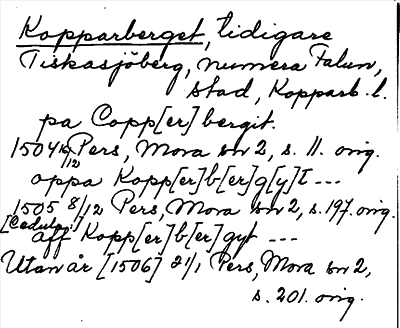 Kopparberget, tidigare
Tiskasjöberg, numera Falun,
stad, Kopparb. l.
pa Copp[er]bergit.
1504 Pers, Mora bn 2, s. 11. orig.
oppa Kopp[er]b[er]g[y]t ---
1505 8/12 Pers, Mora bn 2, s. 197. orig.
[Cedula:]
aff Kopp[er]b[er]gyt ---
Utan år [1506] 21/1 Pers, Mora bn 2,
s. 201. orig.